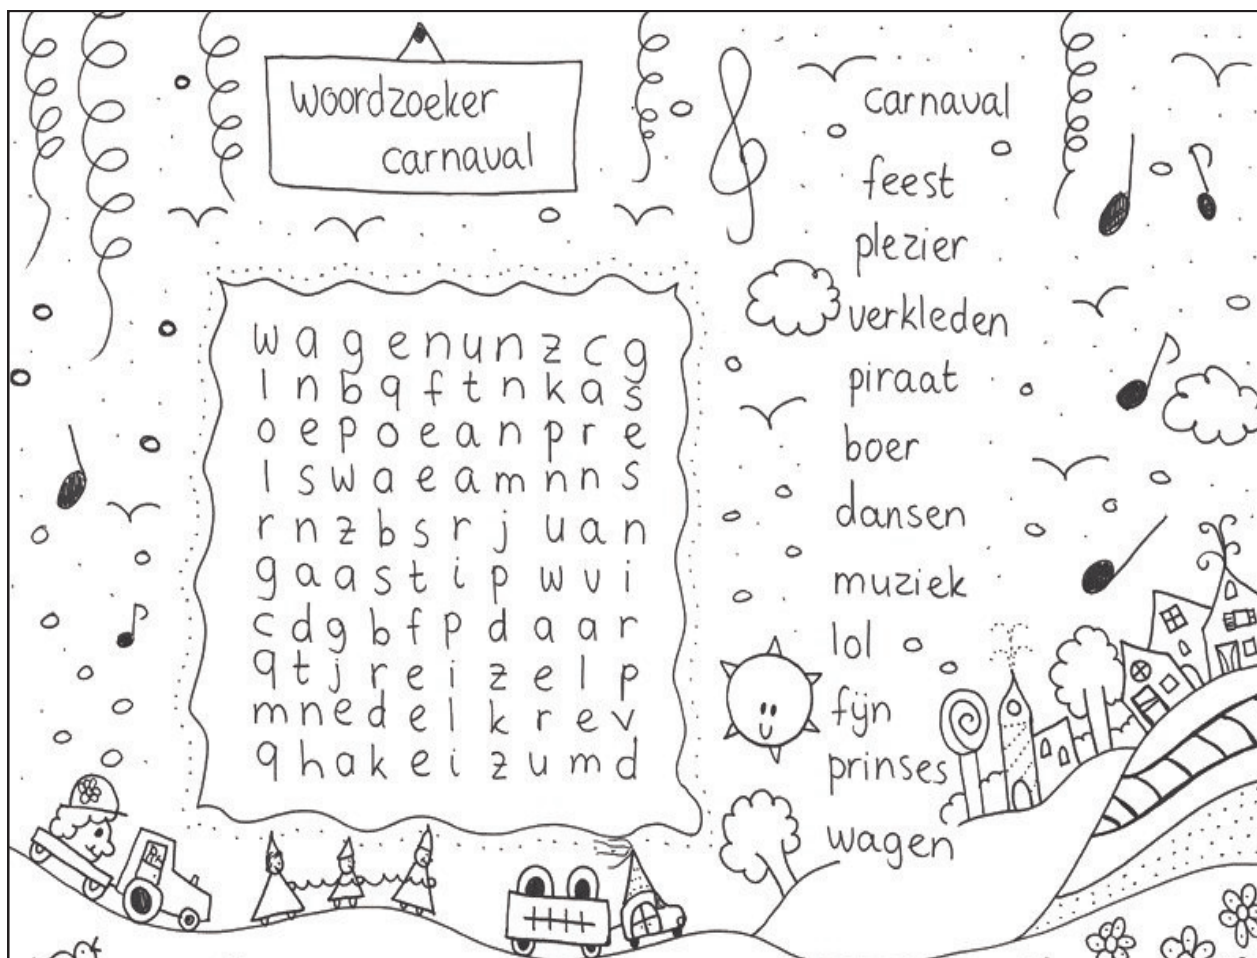 woordzoeker
carnaval
w a g e n u n z c g
l n b q f t n k a s
o e p o e a n p r e
l s w a e a m n n s
r n z b s r j u a n
g a a s t i p w v i
c d g b f p d a a r
q t j r e i z e l p
m n e d e l k r e v
q h a k e i z u m d
carnaval
feest
plezier
verkleden
piraat
boer
dansen
muziek
lol
fijn
prinses
wagen